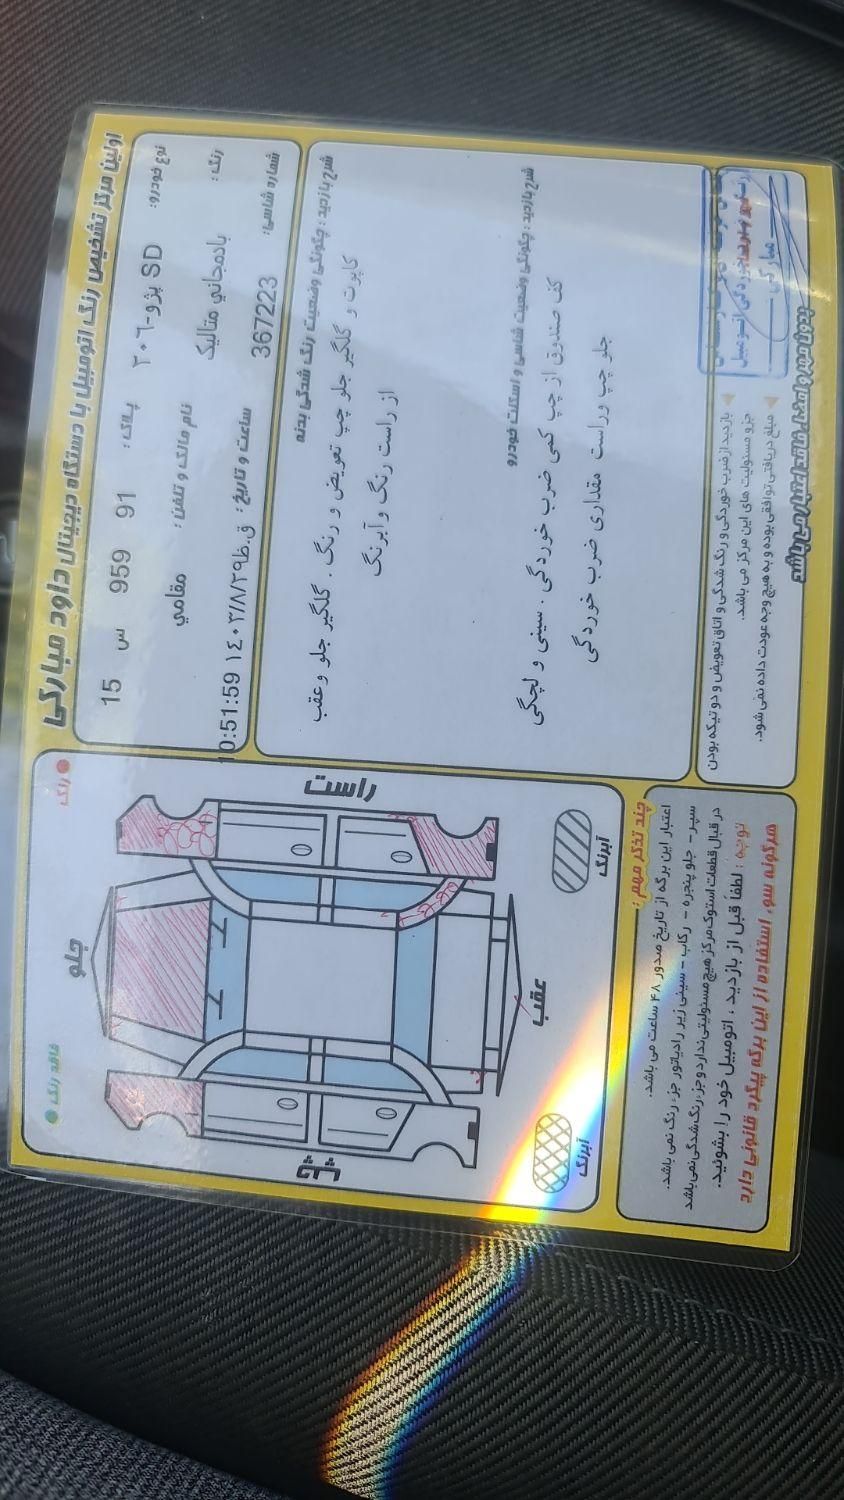 اولین مرکز تشخیص رنگ اتومبیل با دستگاه دیجیتال داود مبارکی
نوع خودرو: پژو-۲۰۶ SD
پلاک: 91 959 س 15
رنگ: بادمجاني متاليک
نام مالک و تلفن: مقامي
شماره شاسی: 367223
ساعت و تاریخ: ۱٤۰۳/۸/۲۹ ق.ظ 10:51:59
شرح بازدید: چگونگی وضعیت رنگ شدگی بدنه
کاپوت و گلگیر جلو چپ تعویض و رنگ. گلگیر جلو وعقب
از راست رنگ و آبرنگ
شرح بازدید: چگونگی وضعیت شاسی و اسکلت خودرو
کف صندوق از چپ کمی ضرب خوردگی. سینی و لچگی
جلو چپ وراست مقداری ضرب خوردگی
بازدید از ضرب خوردگی و رنگ شدگی و اتاق تعویض و دو تیکه بودن
جزو مسئولیت های این مرکز می باشد.
مبلغ دریافتی توافقی بوده و به هیچ وجه عودت داده نمی شود.
رنگ
فاقد رنگ
راست
جلو
عقب
چپ
آبرنگ
آبرنگ
چند تذکر مهم:
اعتبار این برگه از تاریخ صدور ۴۸ ساعت می باشد.
سپر - جلو پنجره - رکاب - سینی زیر رادیاتور جزء رنگ نمی باشد.
در قبال قطعات استوک مرکز هیچ مسئولیتی ندارد و جزء رنگ شدگی نمی باشد
توجه: لطفاً قبل از بازدید، اتومبیل خود را بشوئید.
هرگونه سوء استفاده از این برگه پیگرد قانونی دارد